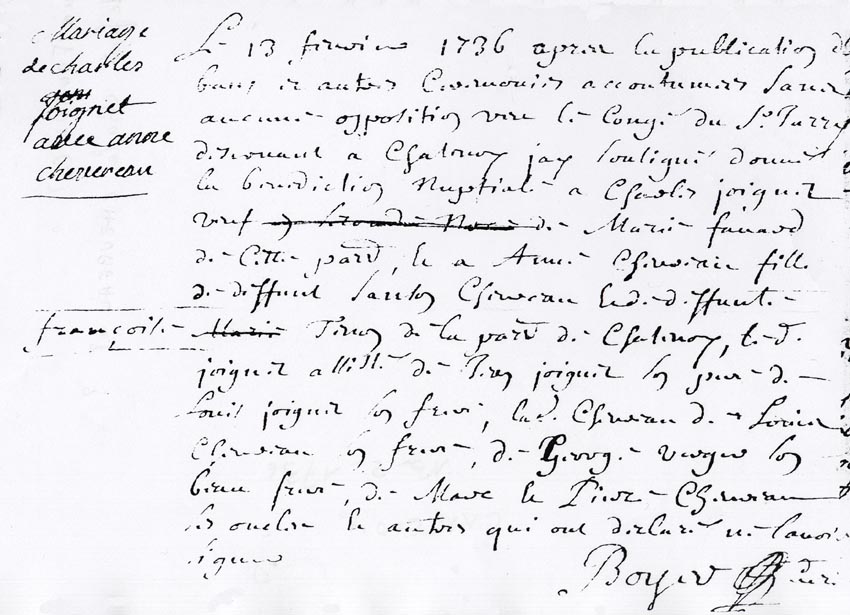 Mariage
de charles
joignet
avec anne
chenereau
Le 13 fevrier 1736 apres la publication de
bans et autres Ceremonies accoutumees sans
aucune opposition veu le Congé du Sr
a Chatenoy jay soussigné donné
la benediction Nuptiale a Charles joignet
veuf de Marie
de Cette parr, et a Anne Cheneveau fille
de deffunt Cheneveau et de deffunte
françoise de la parr de Chatenoy, le d.
joignet assisté de joignet son pere de
Louis joignet son frere, lad. Cheneveau de
Cheneveau son frere, de George son
beau frere, de Marc et Pierre Cheneveau
ses oncles et autres qui ont declaré ne scavoir
signer
Boyer